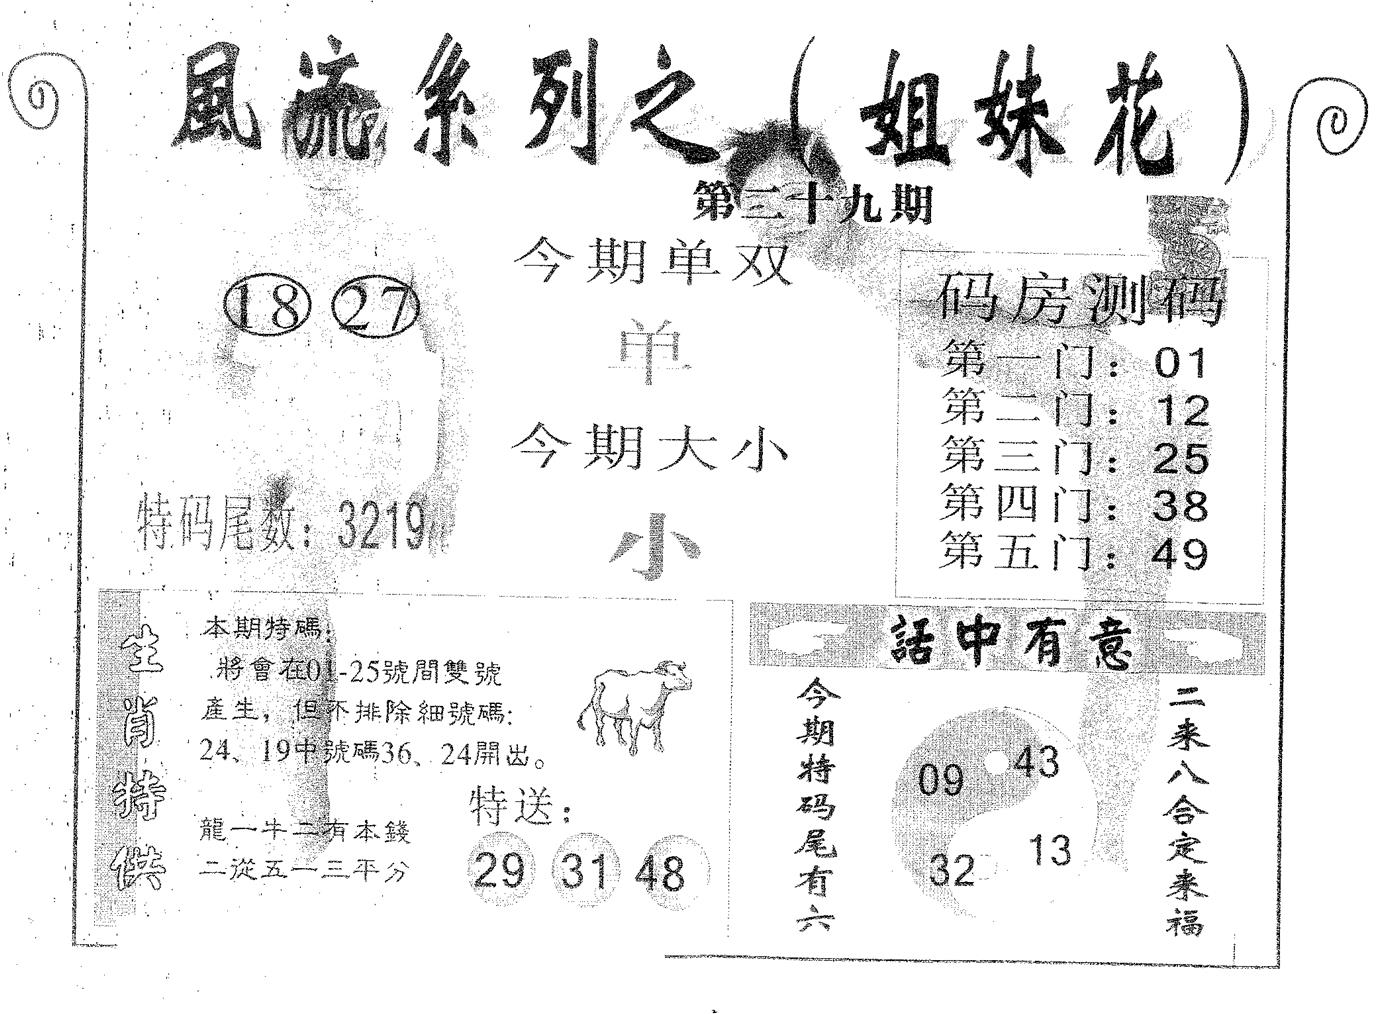 風流系列之（姐妹花）
第三十九期
18 27
今期单双
单
今期大小
小
特码尾数：3219
码房测码
第一门：01
第二门：12
第三门：25
第四门：38
第五门：49
生肖特供
本期特碼：
將會在01-25號間雙號
產生，但不排除細號碼：
24、19中號碼36、24開出。
龍一牛二有本錢
二從五一三平分
特送：
29 31 48
話中有意
今期特码尾有六
09 43
32 13
二来八合定来福